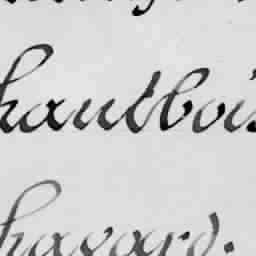 hautbois
hasard.